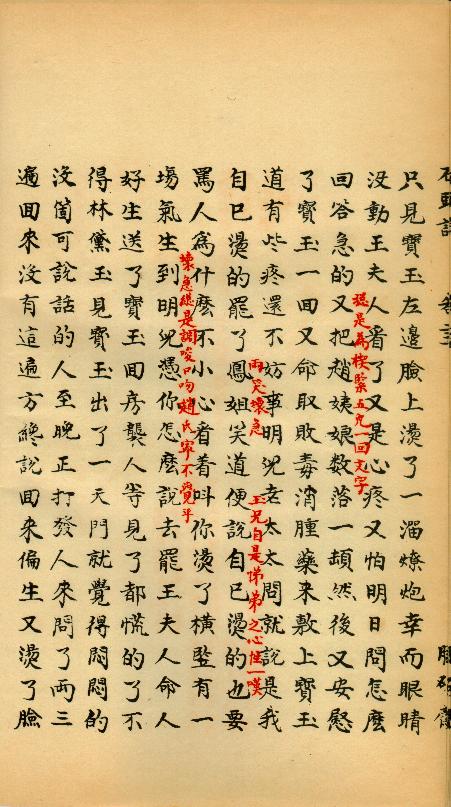 石頭記 脂硯齋
只見寶玉左邊臉上燙了一溜燎炮幸而眼睛
没動王夫人看了又是心疼又怕明日問怎麽
總是為楔緊五鬼一回文字
回答急的又把趙姨娘数落一頓然後又安慰
了寶玉一回又命取敗毒消腫藥来敷上寶玉
道有些疼還不妨事明兒老太太問就說是我
兩笑壞急 玉兄自是悌弟之心性一嘆
自己燙的罷了鳳姐笑道便說自己燙的也要
罵人為什麽不小心看着呌你燙了橫竪有一
壞急總是調唆口吻趙氏寧不覺乎
塲氣生到明兒憑你怎麽說去罷王夫人命人
好生送了寶玉回房襲人等見了都慌的了不
得林黛玉見寶玉出了一天門就覺得悶悶的
没箇可說話的人至晚正打發人来問了兩三
遍回来没有這遍方纔說回来偏生又燙了臉